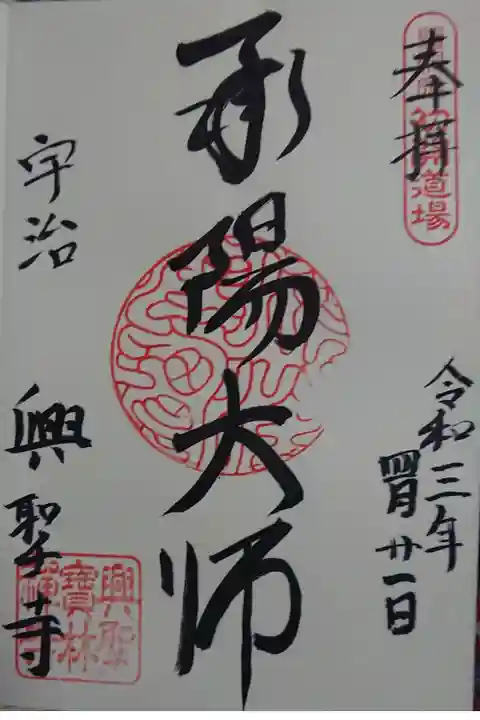 奉拝
道場
令和三年
四月廿一日
承陽大师
宇治
興聖寺
興聖
寶林
禅寺